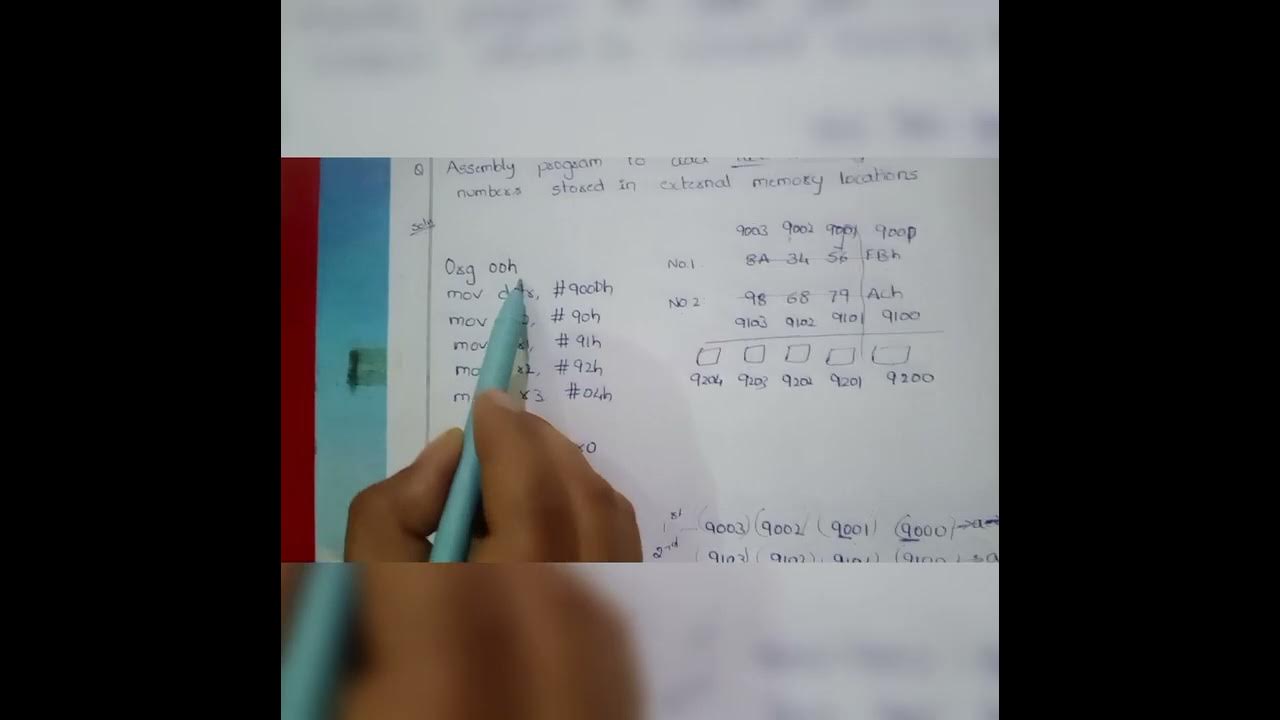 Q Assembly program to add
numbers stored in external memory locations
Soln
Org 00h
mov dptr, #9000h
mov , #90h
mov r1, #91h
r2, #92h
r3 #04h
r0
9003 9002 9001 9000
No.1 8A 34 56 FBh
No 2 98 68 79 ACh
9103 9102 9101 9100
9204 9203 9202 9201 9200
1st (9003) (9002) (9001) (9000)
2nd (9103) (9102) (9101) (9100)